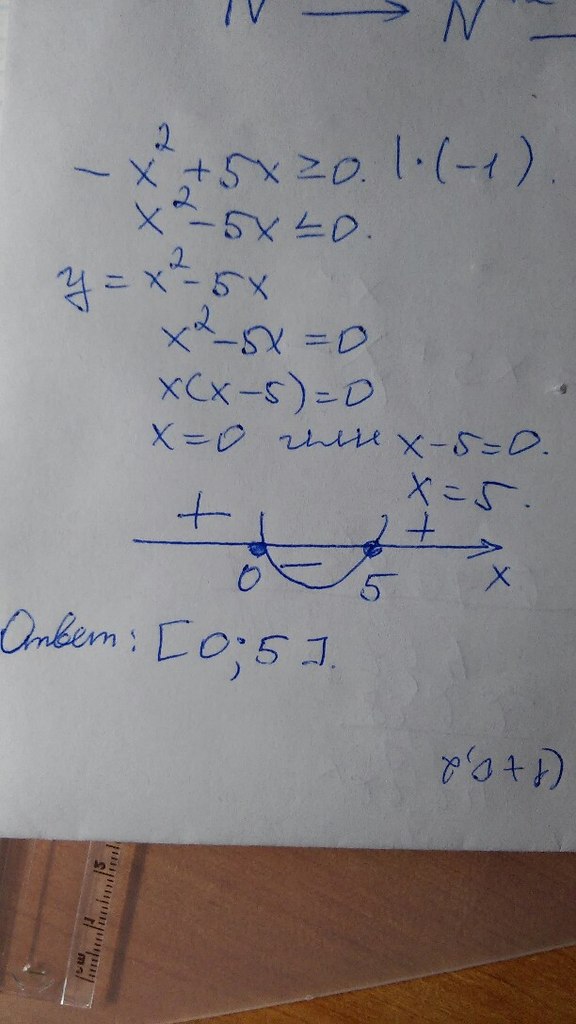 N → N
- x² + 5x ≥ 0. | · (-1).
x² - 5x ≤ 0.
y = x² - 5x
x² - 5x = 0
x(x - 5) = 0
x = 0 или x - 5 = 0.
x = 5.
+ − +
0 5 x
Ответ: [0; 5].